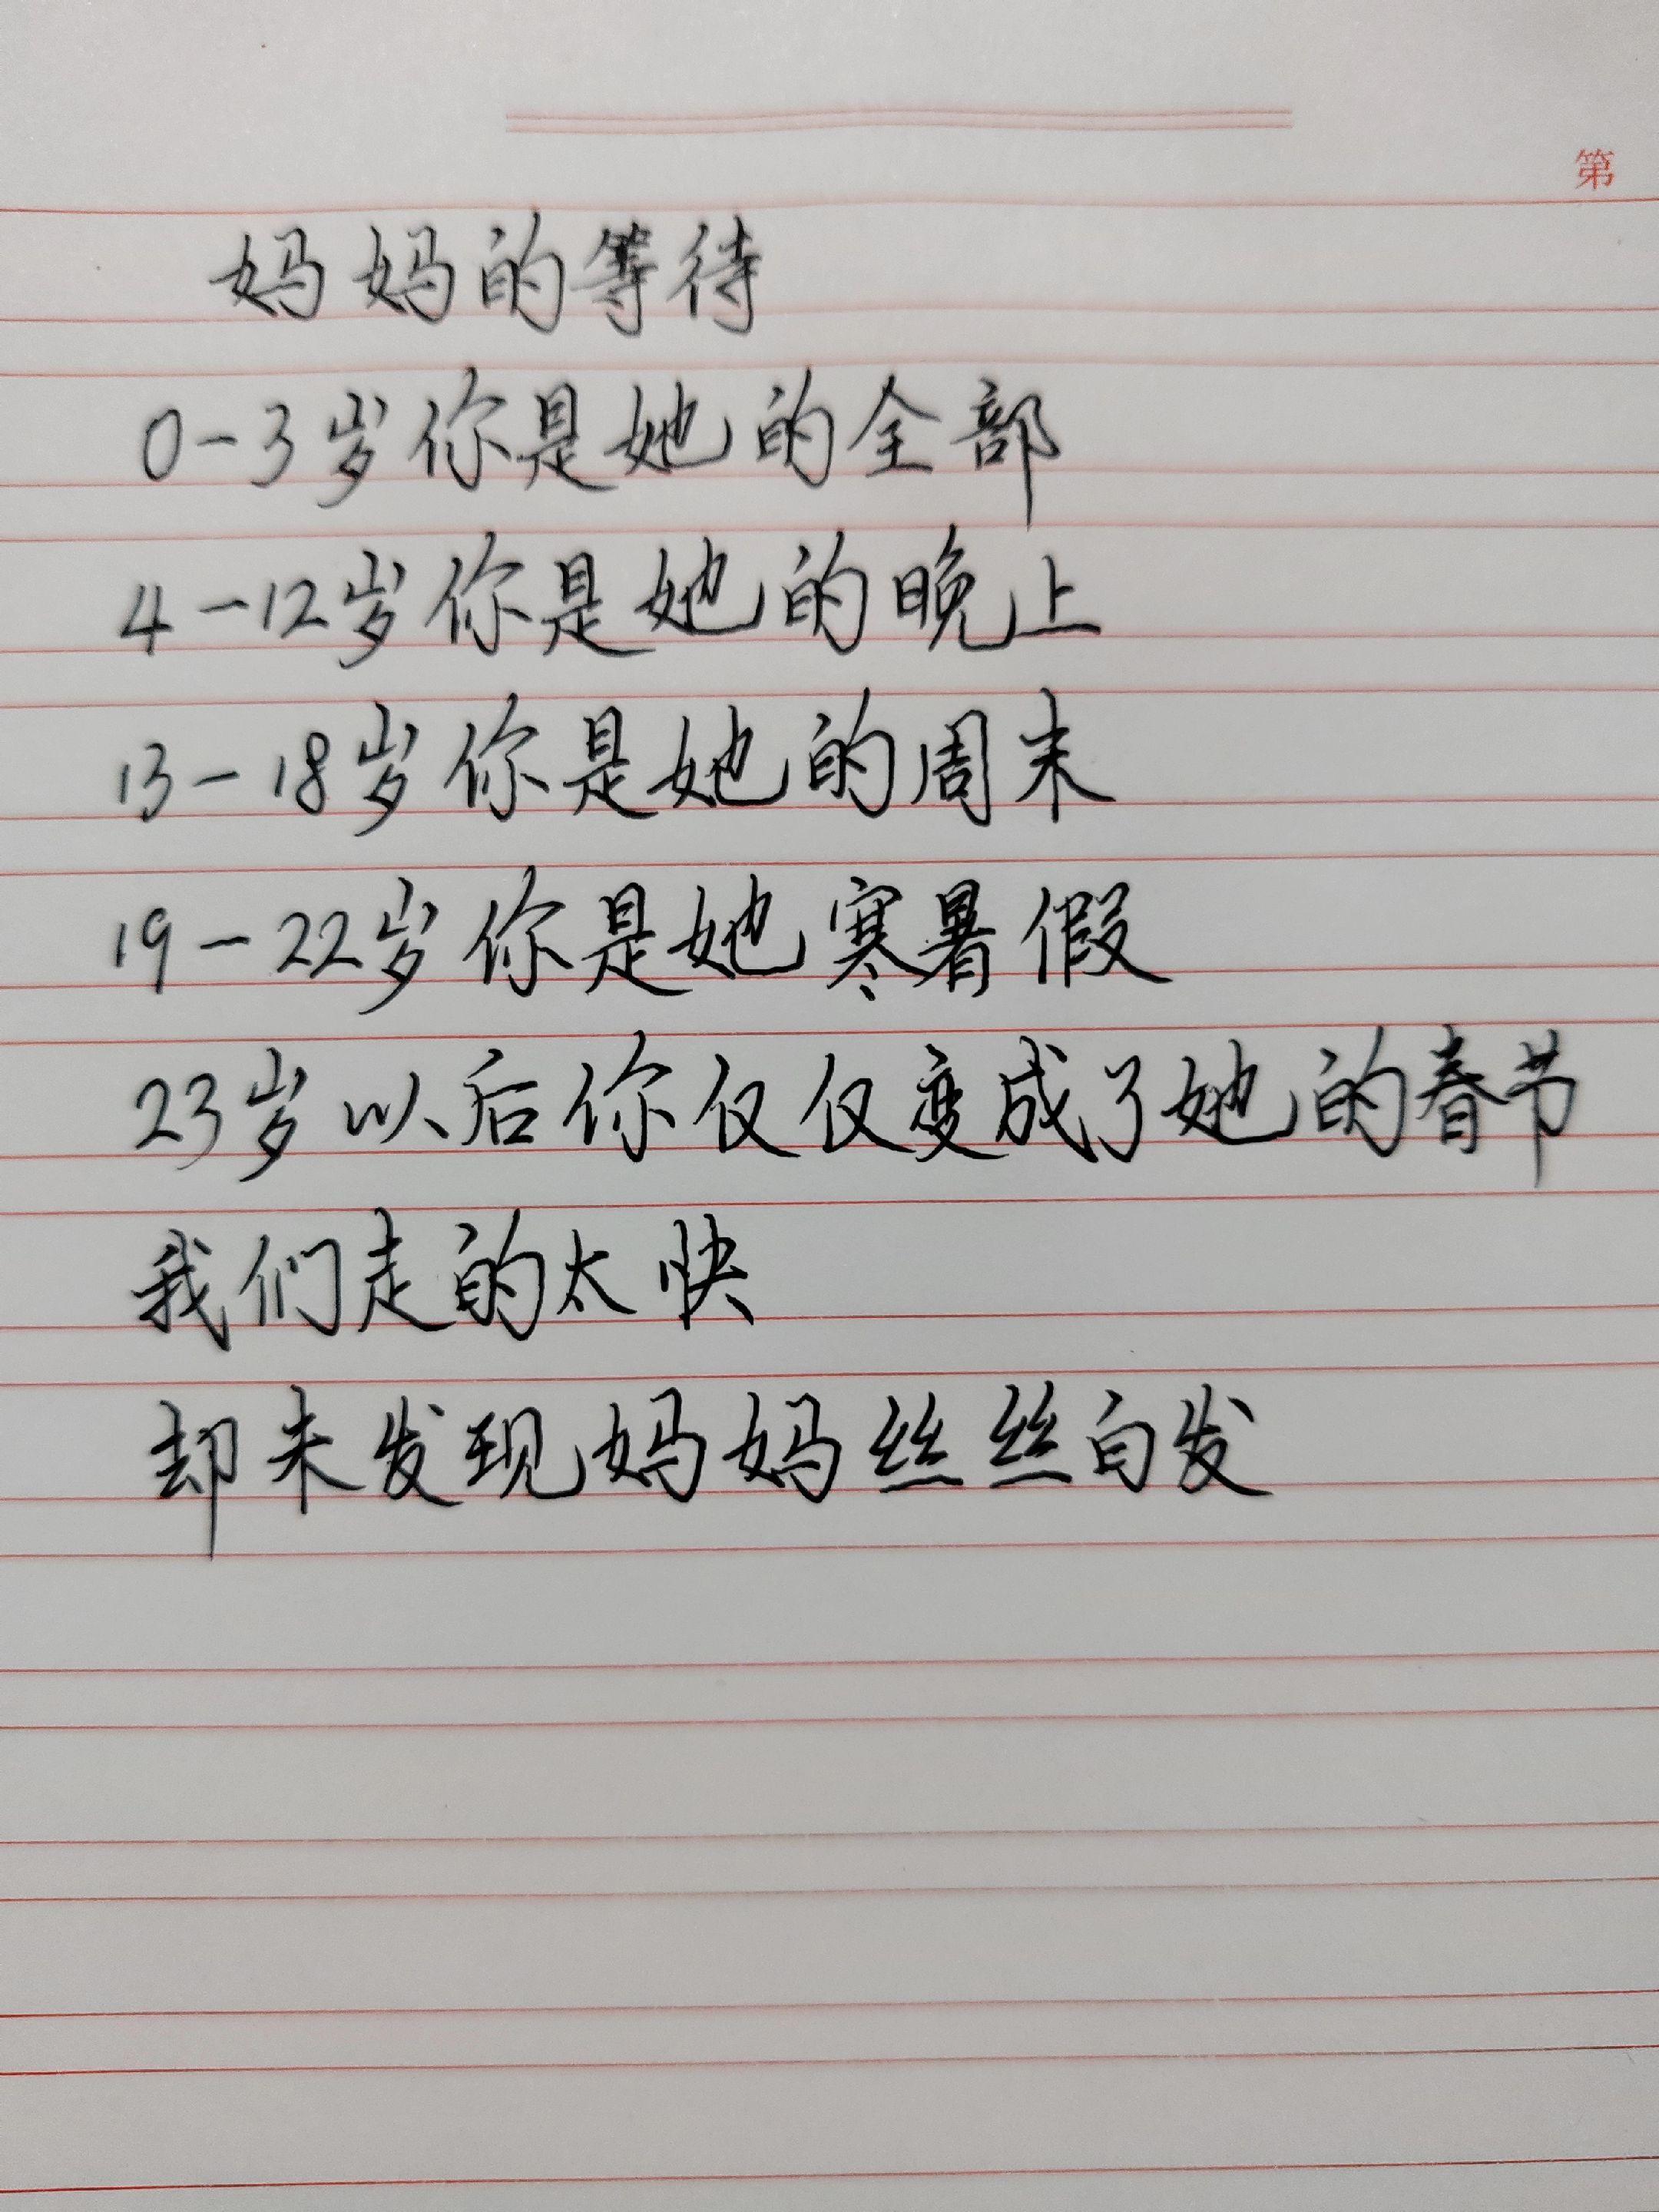 第
妈妈的等待
0-3岁你是她的全部
4-12岁你是她的晚上
13-18岁你是她的周末
19-22岁你是她寒暑假
23岁以后你仅仅变成了她的春节
我们走的太快
却未发现妈妈丝丝白发